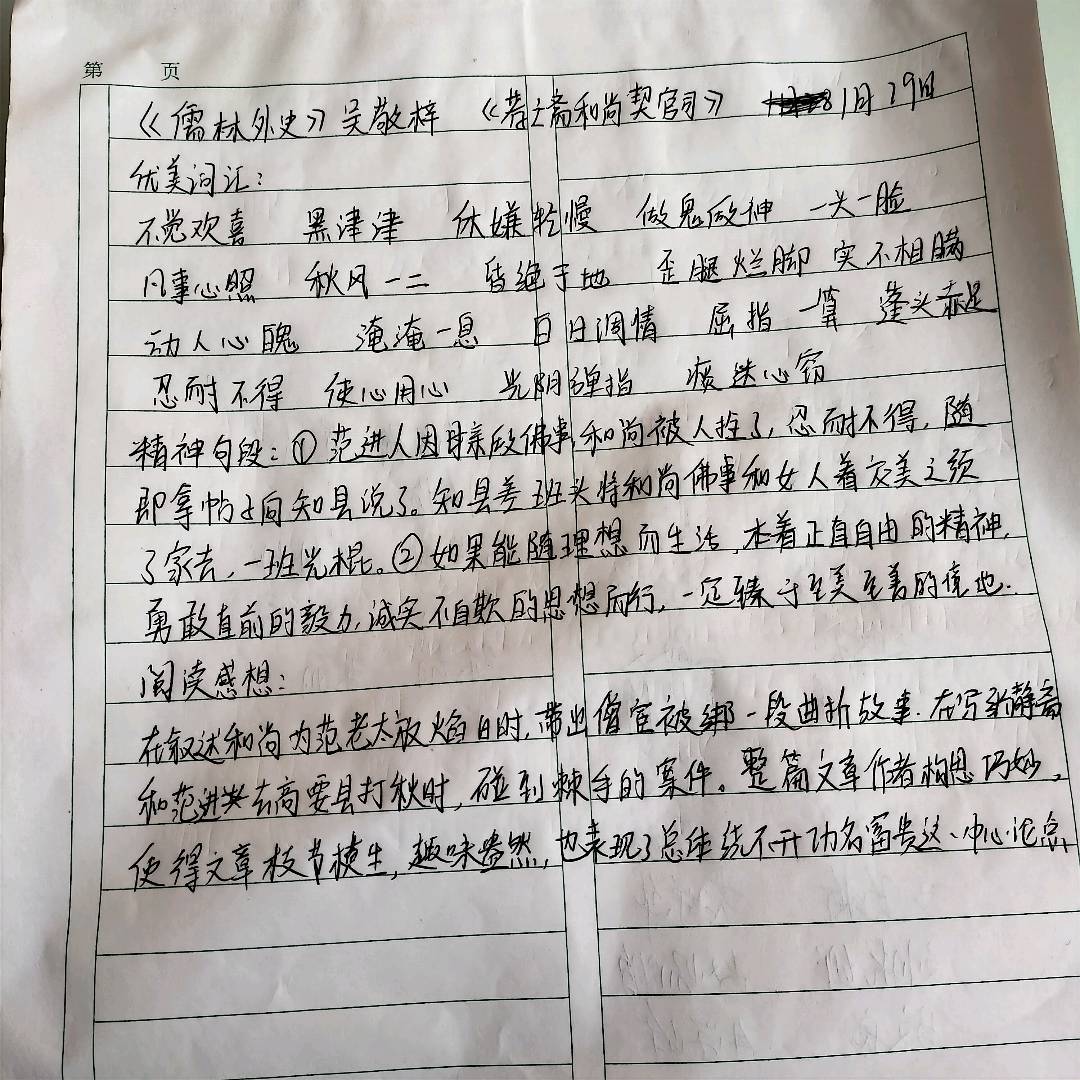 第 页
《儒林外史》吴敬梓 《荐亡斋和尚契官司》 1月29日
优美词汇:
不觉欢喜 黑津津 休嫌轻慢 做鬼做神 一头一脸
凡事心照 秋风一二 昏绝于地 歪腿烂脚 实不相瞒
动人心魄 淹淹一息 白日调情 屈指一算 蓬头赤足
忍耐不得 使心用心 光阴弹指 心窍
精神句段:①范进人因母亲做佛事和尚被人拴了,忍耐不得,随
即拿帖去向知县说了。知县差班头将和尚佛事和女人着交美之领
了家去,一班光棍。②如果能随理想而生活,本着正直自由的精神,
勇敢直前的毅力,诚实不自欺的思想而行,一定臻于至美至善的境地.
阅读感想:
在叙述和尚为范老太放焰日时,带出僧官被绑一段曲折故事.在写张静斋
和范进去高要县打秋时,碰到棘手的案件。整篇文章作者构思巧妙,
使得文章枝节横生,趣味盎然,也表现了总体绕不开功名富贵这一中心论点,